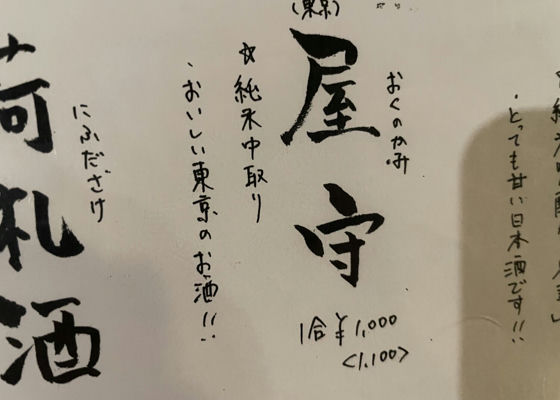 ・とっても甘い日本酒です!!
(東京)
おくのかみ
屋守
1合¥1,000
<1,100>
☆純米中取り
・おいしい東京のお酒!!
にふだざけ
荷札酒